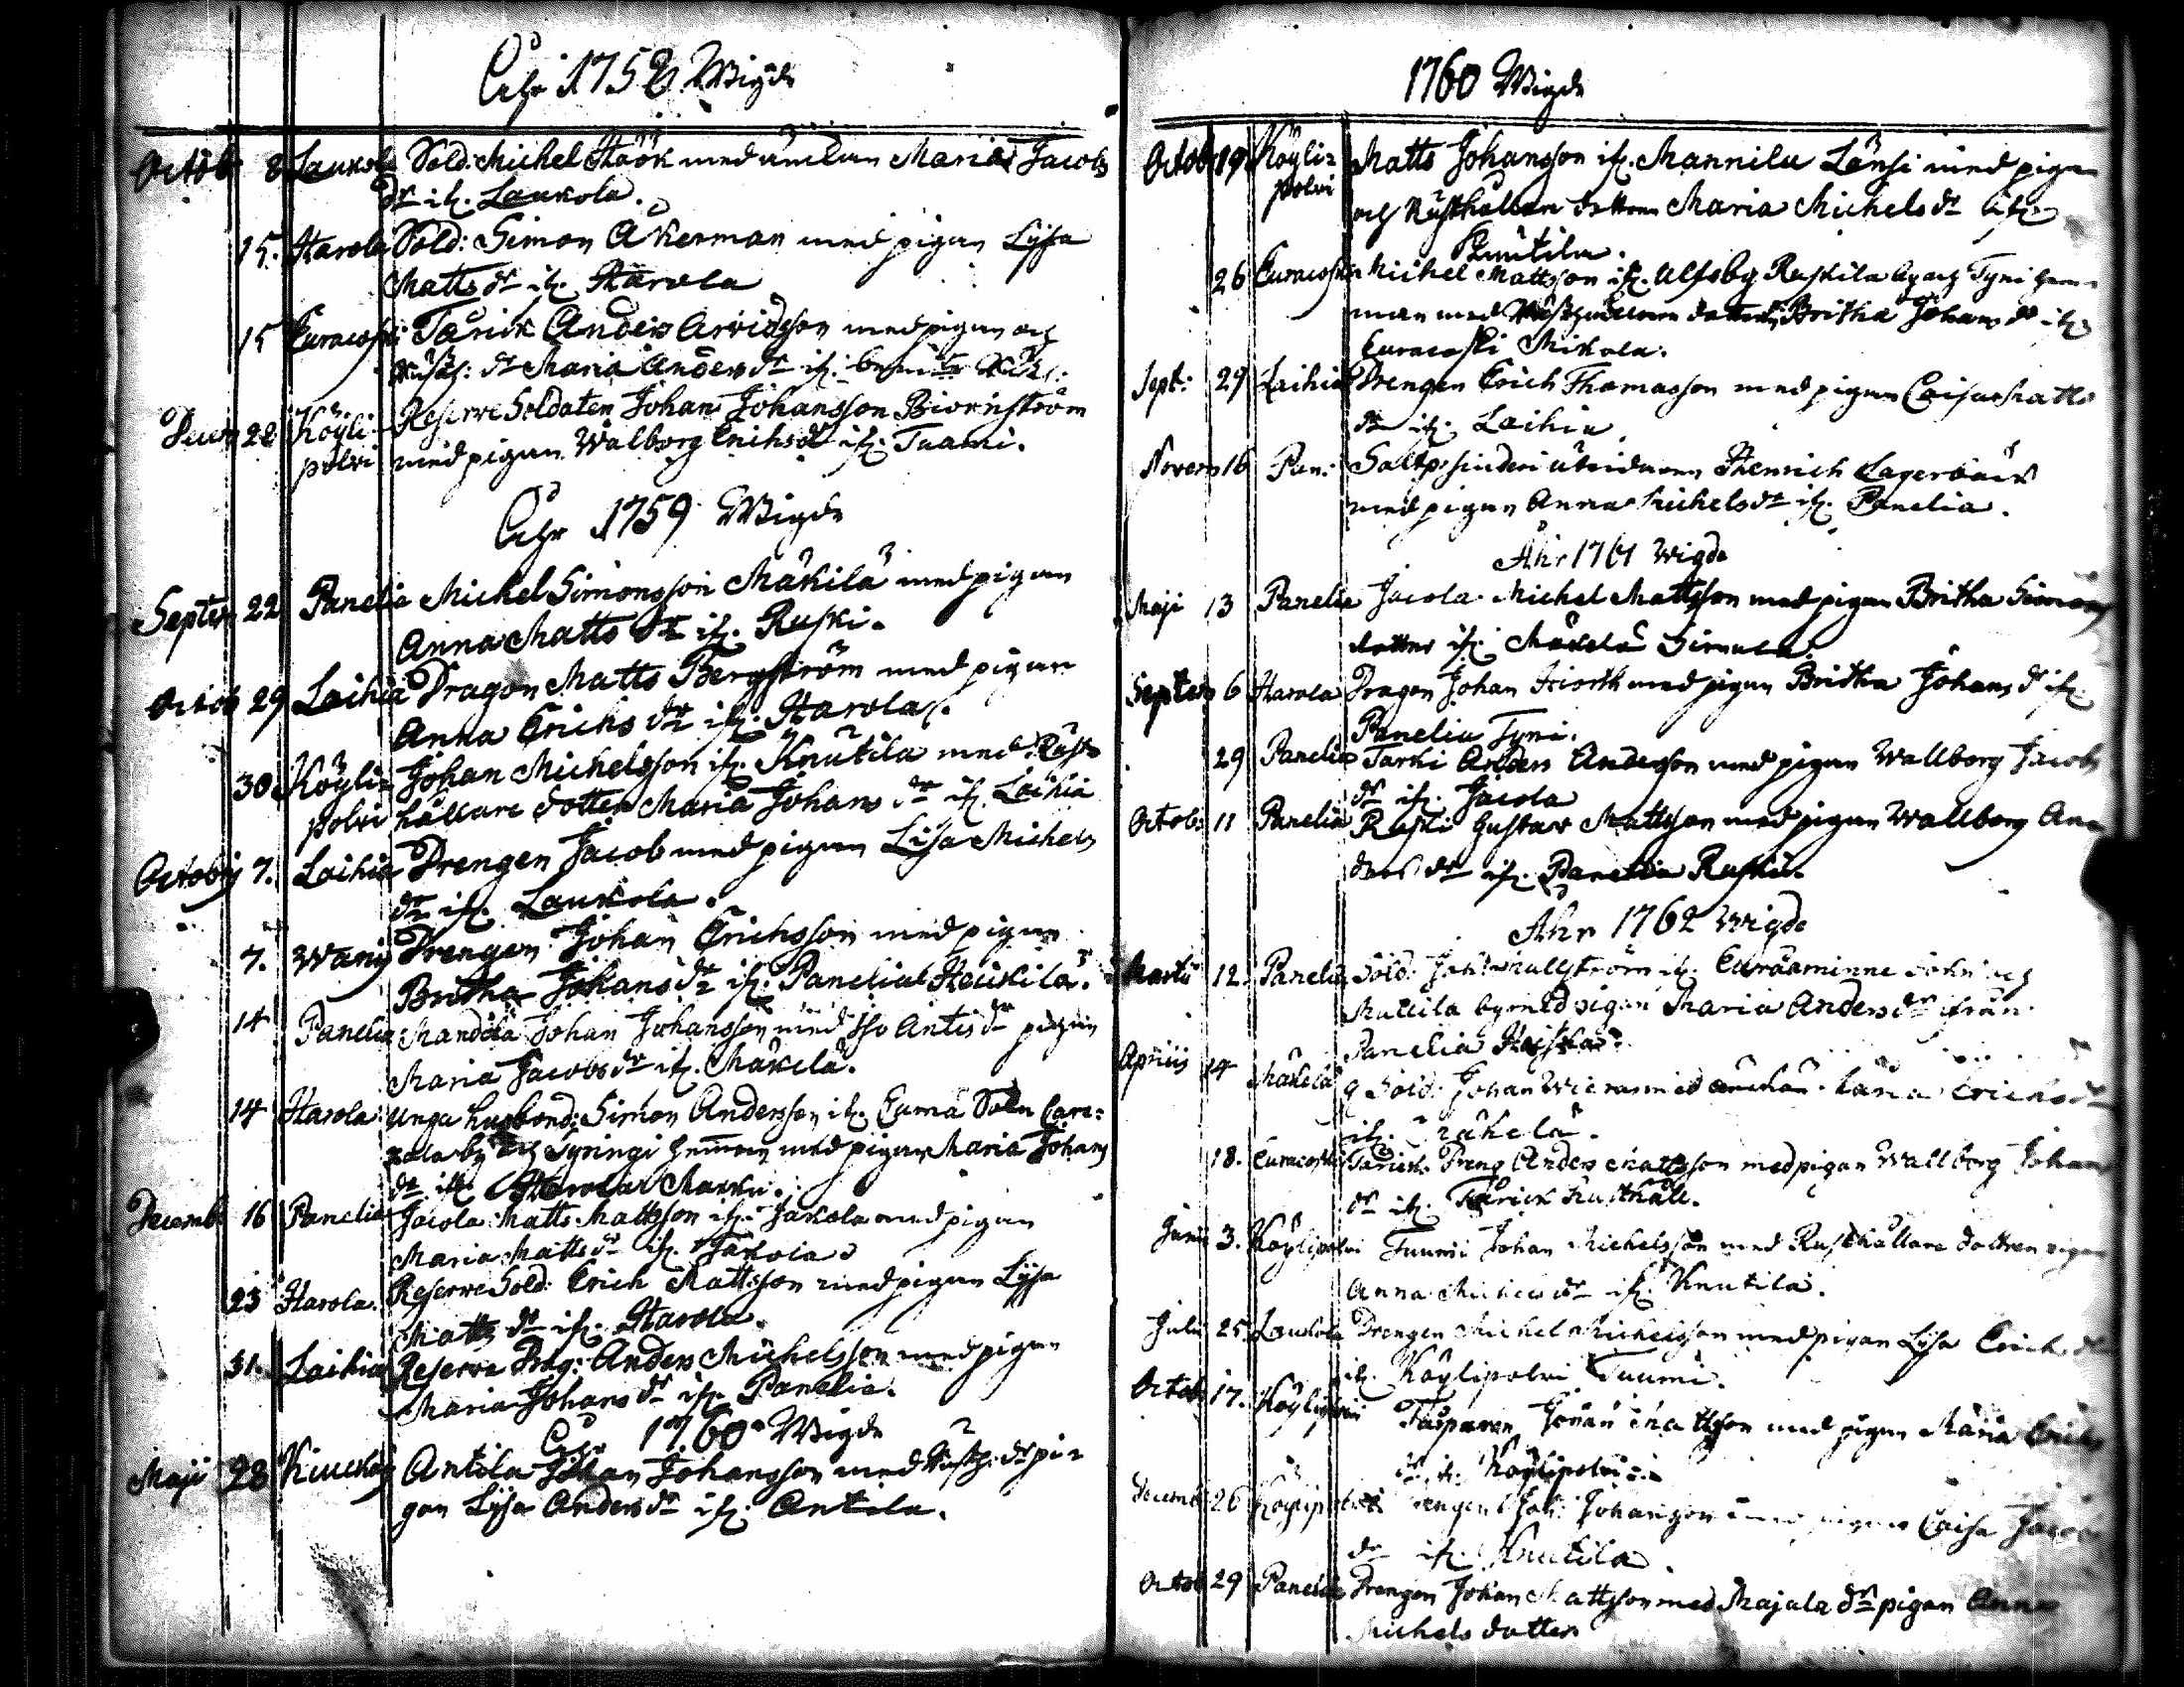 Åhr 1758 Wigde
Octob 8 Laukola Sold: Michel Höök med änkan Maria Jacobs
dr ifr. Laukola.
15. Harola Sold: Simon Åkerman med pigan Lysa
Matts dr ifr. Harola
15 Euracoski Tarick Anders Arvidsson med pigan och
Rusth: dr Maria Anders dr ifr.
Decem 28 Köyli- Reserve Soldaten Johan Johansson Biörnström
polvi med pigan Walborg Erichs dr ifr. Tuomi.
Åhr 1759 Wigde
Septem 22 Panelia Michel Simonsson Mäkilä med pigan
Anna Matts dr ifr. Ruski.
Octob 29 Laihia Dragon Matts Bergström med pigan
Anna Erichs dr ifr. Harola.
30 Köyli- Johan Michelsson ifr. Knutila med Rust-
polvi hållare dotter Maria Johans dr ifr. Laihia
Octobr 7. Laihia Drengen Jacob med pigan Lisa Michels
dr ifr. Laukola.
7. Wanij Drengen Johan Erichsson med pigan
Britha Johans dr ifr. Panelia Heickilä.
14 Panelia Mandila Johan Johansson med Iso Antis dr pigan
Maria Jacobs dr ifr. Mäkelä.
14 Harola Unga husbond: Simon Andersson ifr. Eura Sokn
by och Syringi heman med pigan Maria Johans
dr ifr. Harola Marku.
Decemb 16 Panelia Jacola Matts Mattsson ifr. Jakola med pigan
Maria Matts dr ifr. Jakola
23 Harola. Reserve Sold: Erich Mattsson med pigan Lysa
Matts dr ifr. Harola.
31. Laihia Reserve Drag: Anders Michelsson med pigan
Maria Johans dr ifr. Panelia.
Åhr 1760 Wigde
Maji 28 Kiuckais Antila Johan Johansson med Rusth: dr pi-
gan Lysa Anders dr ifr. Antila.
1760 Wigde
Octob 19 Köyli- Matts Johansson ifr. Mannila Länsi med pigan
polvi och Rusthållare dottren Maria Michels dr ifr
Knutila.
26 Euracoski Michel Mattsson ifr. Ulfsby Ruskila by och Tyni hem-
man med dotter Britha Johans dr ifr
Euracoski Mikola.
Sept: 29 Laihia Drengen Erich Thomasson med pigan Caisa Matts
dr ifr. Laihia
Novem 16 Pan: Saltp: sinderi Henrich Lagerbäck
med pigan Anna Michels dr ifr. Panelia.
Åhr 1761 Wigde
Maji 13 Panelia Jacola Michel Mattsson med pigan Britha Simons
dotter ifr. Mäkelä Simula.
Septem 6 Harola Dragon Johan Hiorth med pigan Britha Johans dr ifr
Panelia Tyni.
29 Panelia Tarki Anders Andersson med pigan Wallborg Jacobs
dr ifr. Jacola
Octob 11 Panelia Ruski Gustav Mattsson med pigan Wallborg An-
ders dr ifr. Panelia Ruski.
Åhr 1762 Wigde
Martii 12. Panelia Sold: Joh: ifr. Euraåminne Sokn och
by med pigan Maria Anders dr ifrån
Panelia
Aprilis 14 Mäkelä Sold: Johan med Erichs dr
ifr. Mäkelä.
18. Euracoski Tarick Dreng Anders Mattsson med pigan Wallborg Johans
dr ifr. Tarick Rusthåll.
Junii 3. Köylipolvi Tuumi Johan Michelsson med Rusthållare dottren pigan
Anna Michels dr ifr. Knutila.
Julii 25. Laukola Drengen Michel Michelsson med pigan Lysa Erichs dr
ifr. Köylipolvi Tuumi.
Octob 17. Köylipolvi Johan Mattsson med pigan Maria Erichs
dr ifr. Köylipolvi
Decemb 26 Köylipolvi Drengen Joh: Johansson med pigan Caisa Jacobs
dr ifr. Knutila
Octob 29 Panelia Drengen Johan Mattsson med Majala dr pigan Anna
Michels dotter